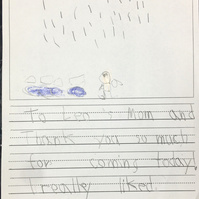 To Leo's Mom and
Thank you so much
for coming today
I really liked.